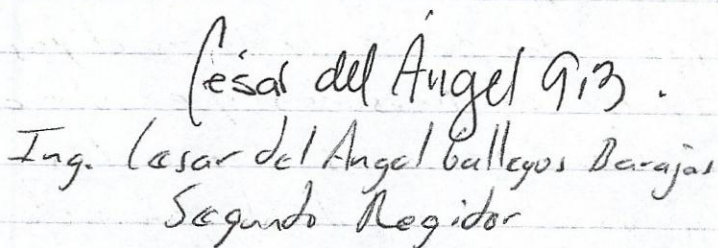 César del Ángel G.B.
Ing. Cesar del Angel Gallegos Barajas
Segundo Regidor